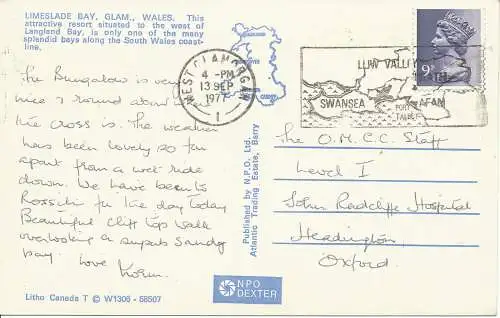 LIMESLADE BAY, GLAM., WALES. This
attractive resort situated to the west of
Langland Bay, is only one of the many
splendid bays along the South Wales coast-
line.
The Bungalow is very
nice & round about
the cross is the weather
has been lovely so far
apart from a wet ride
down. We have been to
Rossili for the day today
Beautiful Cliff top walk
overlooking a superb Sandy
bay. love
WEST GLAMORGAN
4 - PM
13 SEP
1977
I
LLIW VALLEY
SWANSEA
PORT
TALBOT
AFAN
9P
Published by N.P.O. Ltd.
Atlantic Trading Estate, Barry
The O.M.C.C. Staff
Level I
John Radcliffe Hospital
Headington
Oxford.
NPO
DEXTER
Litho Canada T © W1306 - 58507